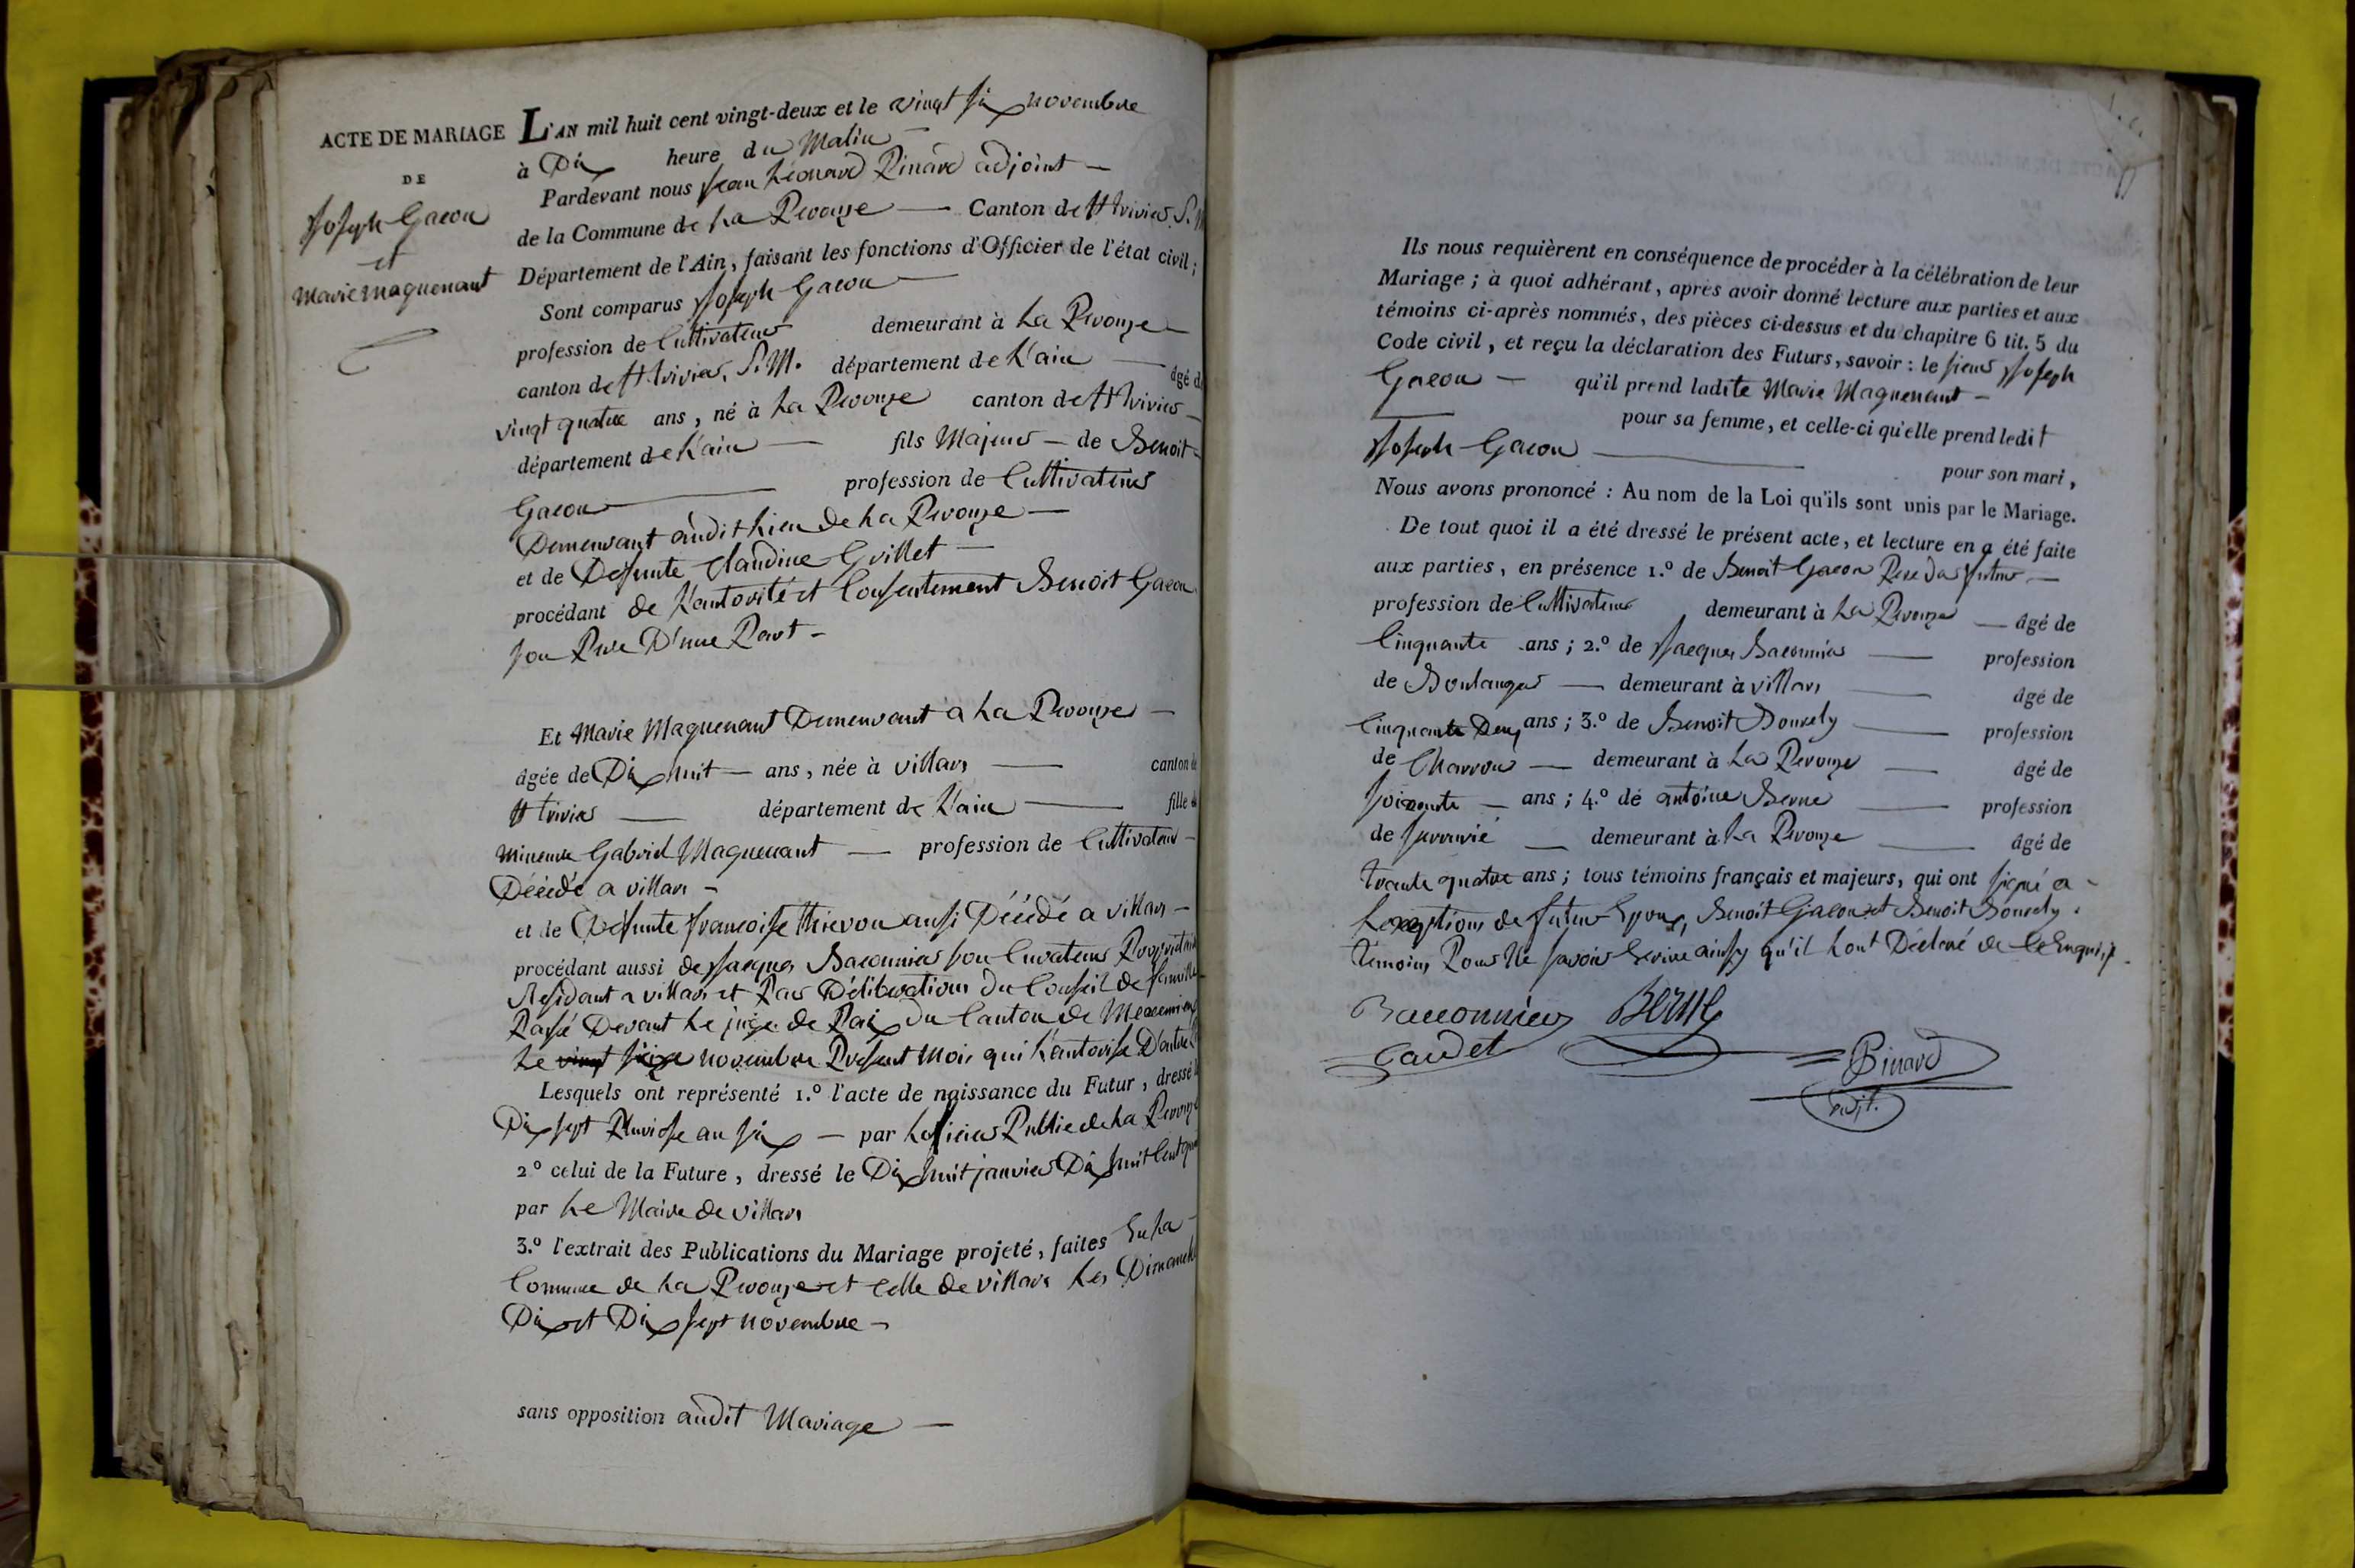 ACTE DE MARIAGE
DE
Joseph Gacon
et
Marie Maquenant
L'AN mil huit cent vingt-deux et le vingt six novembre
à Dix heure du Matin
Pardevant nous Jean Léonard Pinard adjoint
de la Commune de La Perouze Canton de St trivier S. M
Département de l'Ain, faisant les fonctions d'Officier de l'état civil ;
Sont comparus Joseph Gacon
profession de Cultivateur demeurant à La Perouze
canton de St trivier, S. M. département de L'ain âgé de
vingt quatre ans, né à La Perouze canton de St trivier
département de L'ain fils Majeur de Benoit
Gacon profession de Cultivateur
Demeurant audit Lieu de La Perouze
et de Defunte Claudine Grillet
procédant de L'autorité et Consentement Benoit Gacon
son Pere D'une Part
Et Marie Maquenant Demeurant a La Perouze
âgée de Dix huit ans, née à villars canton de
St trivier département de L'ain fille de
mineure Gabriel Maquenant profession de Cultivateur
Décédé a villars
et de Défunte francoise Thievon aussi Décédé a villars
procédant aussi de Jacques Baconnier son Curateur Proprietaire
Residant a villars et Par Déliberation du Conseil de famille
Passé Devant Le juge de Paix du Canton de Meximieux
Le vingt seize novembre Present Mois qui L'autorise D'autre
Lesquels ont représenté 1.º l'acte de naissance du Futur, dressé le
Dix sept Pluviose an six par Lofficier Public de La Perouze
2º celui de la Future, dressé le Dix huit janvier Dix huit Cent
par Le Maire de villars
3.º l'extrait des Publications du Mariage projeté, faites En La
Commune de La Perouze et Celle de villars Les Dimanche
Dix et Dix sept novembre
sans opposition audit Mariage
Ils nous requièrent en conséquence de procéder à la célébration de leur
Mariage ; à quoi adhérant, après avoir donné lecture aux parties et aux
témoins ci-après nommés, des pièces ci-dessus et du chapitre 6 tit. 5 du
Code civil, et reçu la déclaration des Futurs, savoir : le sieur Joseph
Gacon qu'il prend ladite Marie Maquenant
pour sa femme, et celle-ci qu'elle prend ledit
Joseph Gacon pour son mari,
Nous avons prononcé : Au nom de la Loi qu'ils sont unis par le Mariage.
De tout quoi il a été dressé le présent acte, et lecture en a été faite
aux parties, en présence 1.º de Benoit Gacon Pere du futur
profession de Cultivateur demeurant à La Perouze âgé de
Cinquante ans ; 2.º de Jacques Baconnier profession
de Boulanger demeurant à villars âgé de
Cinquante Deux ans ; 3.º de Benoit Bouvety profession
de Charron demeurant à La Perouze âgé de
soixante ans ; 4.º de antoine Berne profession
de demeurant à La Perouze âgé de
trente quatre ans ; tous témoins français et majeurs, qui ont signé a
Lexeption de futur Epoux, Benoit Gacon et Benoit Bouvety
témoins Pour Ne savoir Ecrire ainsy qu'il Lont Déclaré de Ce Enquis
Bauonnier Berne
Gaudet
Pinard
adjt.